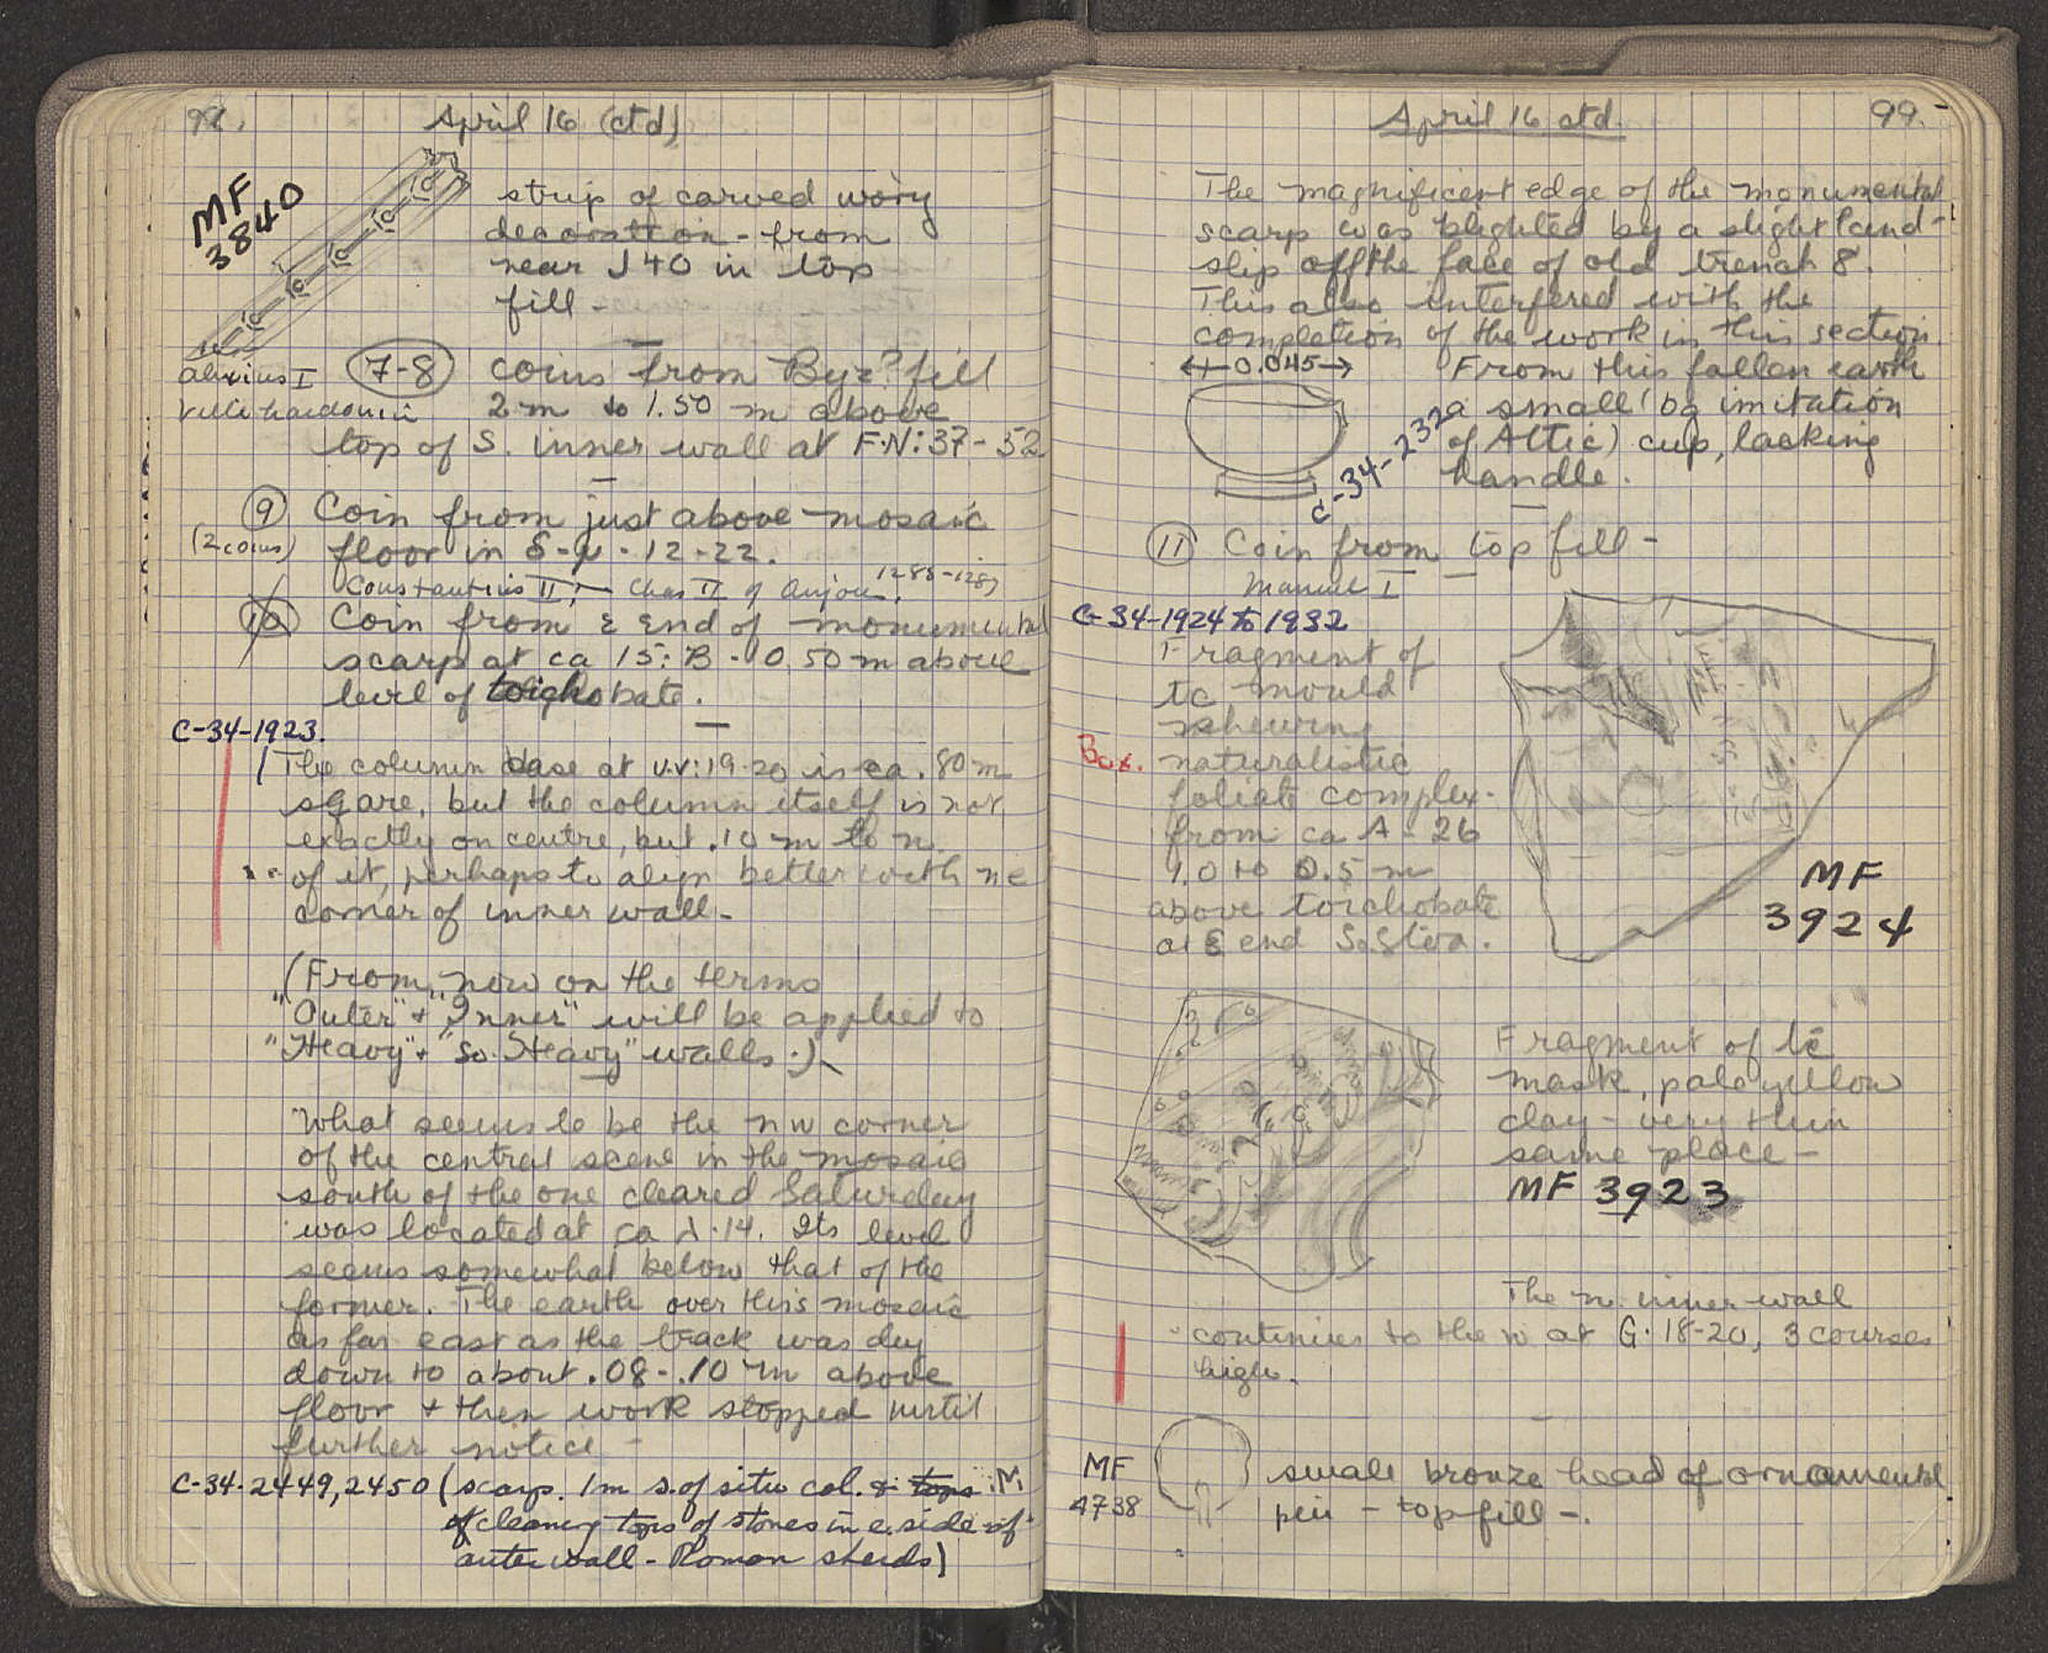 98.
April 16 (ctd)
MF
3840
strip of carved ivory
decoration - from
near J 40 in top
fill -
Alexius I
Villehardouin
7-8 coins from Byz? fill
2 m to 1.50 m above
top of S. inner wall at F-N: 37-52
9 Coin from just above mosaic
(2 coins) floor in S-μ - 12-22.
Constantius II; - Chas II of Anjou, 1285-1289
10 Coin from E end of monumental
scarp at ca 15: B - 0.50 m above
level of toichobate.
C-34-1923.
(The column base at U.V: 19-20 is ca. .80 m
sqare, but the column itself is not
exactly on centre, but .10 m to n.
of it, perhaps to align better with ne
corner of inner wall -
(From now on the terms
"Outer" + "Inner" will be applied to
"Heavy" + "So. Heavy" walls.)
What seems to be the nw corner
of the central scene in the mosaic
south of the one cleared Saturday
was located at ca λ-14. Its level
seems somewhat below that of the
former. The earth over this mosaic
as far east as the track was dug
down to about .08-.10 m above
floor + then work stopped until
further notice -
C-34-2449, 2450 (scarp. 1m s. of situ col. & tops
of cleaning tops of stones in e. side of
outer wall - Roman sherds)
April 16 ctd.
99.
The magnificent edge of the monumental
scarp was blighted by a slight land-
slip off the face of old trench 8.
This also interfered with the
completion of the work in this section.
0.045
From this fallen earth
a small bg imitation
of Attic) cup, lacking
handle.
C-34-2322
11 Coin from top fill -
Manuel I
C-34-1924 to 1932
Fragment of
tc mould
shewing
Box. naturalistic
foliate complex -
from ca A-26
1.0 to 0.5 m
above toichobate
at E end So. Stoa.
MF
3924
Fragment of tc
mask, pale yellow
clay - very thin
same place -
MF 3923
The n. inner wall
continues to the n at G. 18-20, 3 courses
high.
MF
4738
small bronze head of ornamental
pin - top fill -.